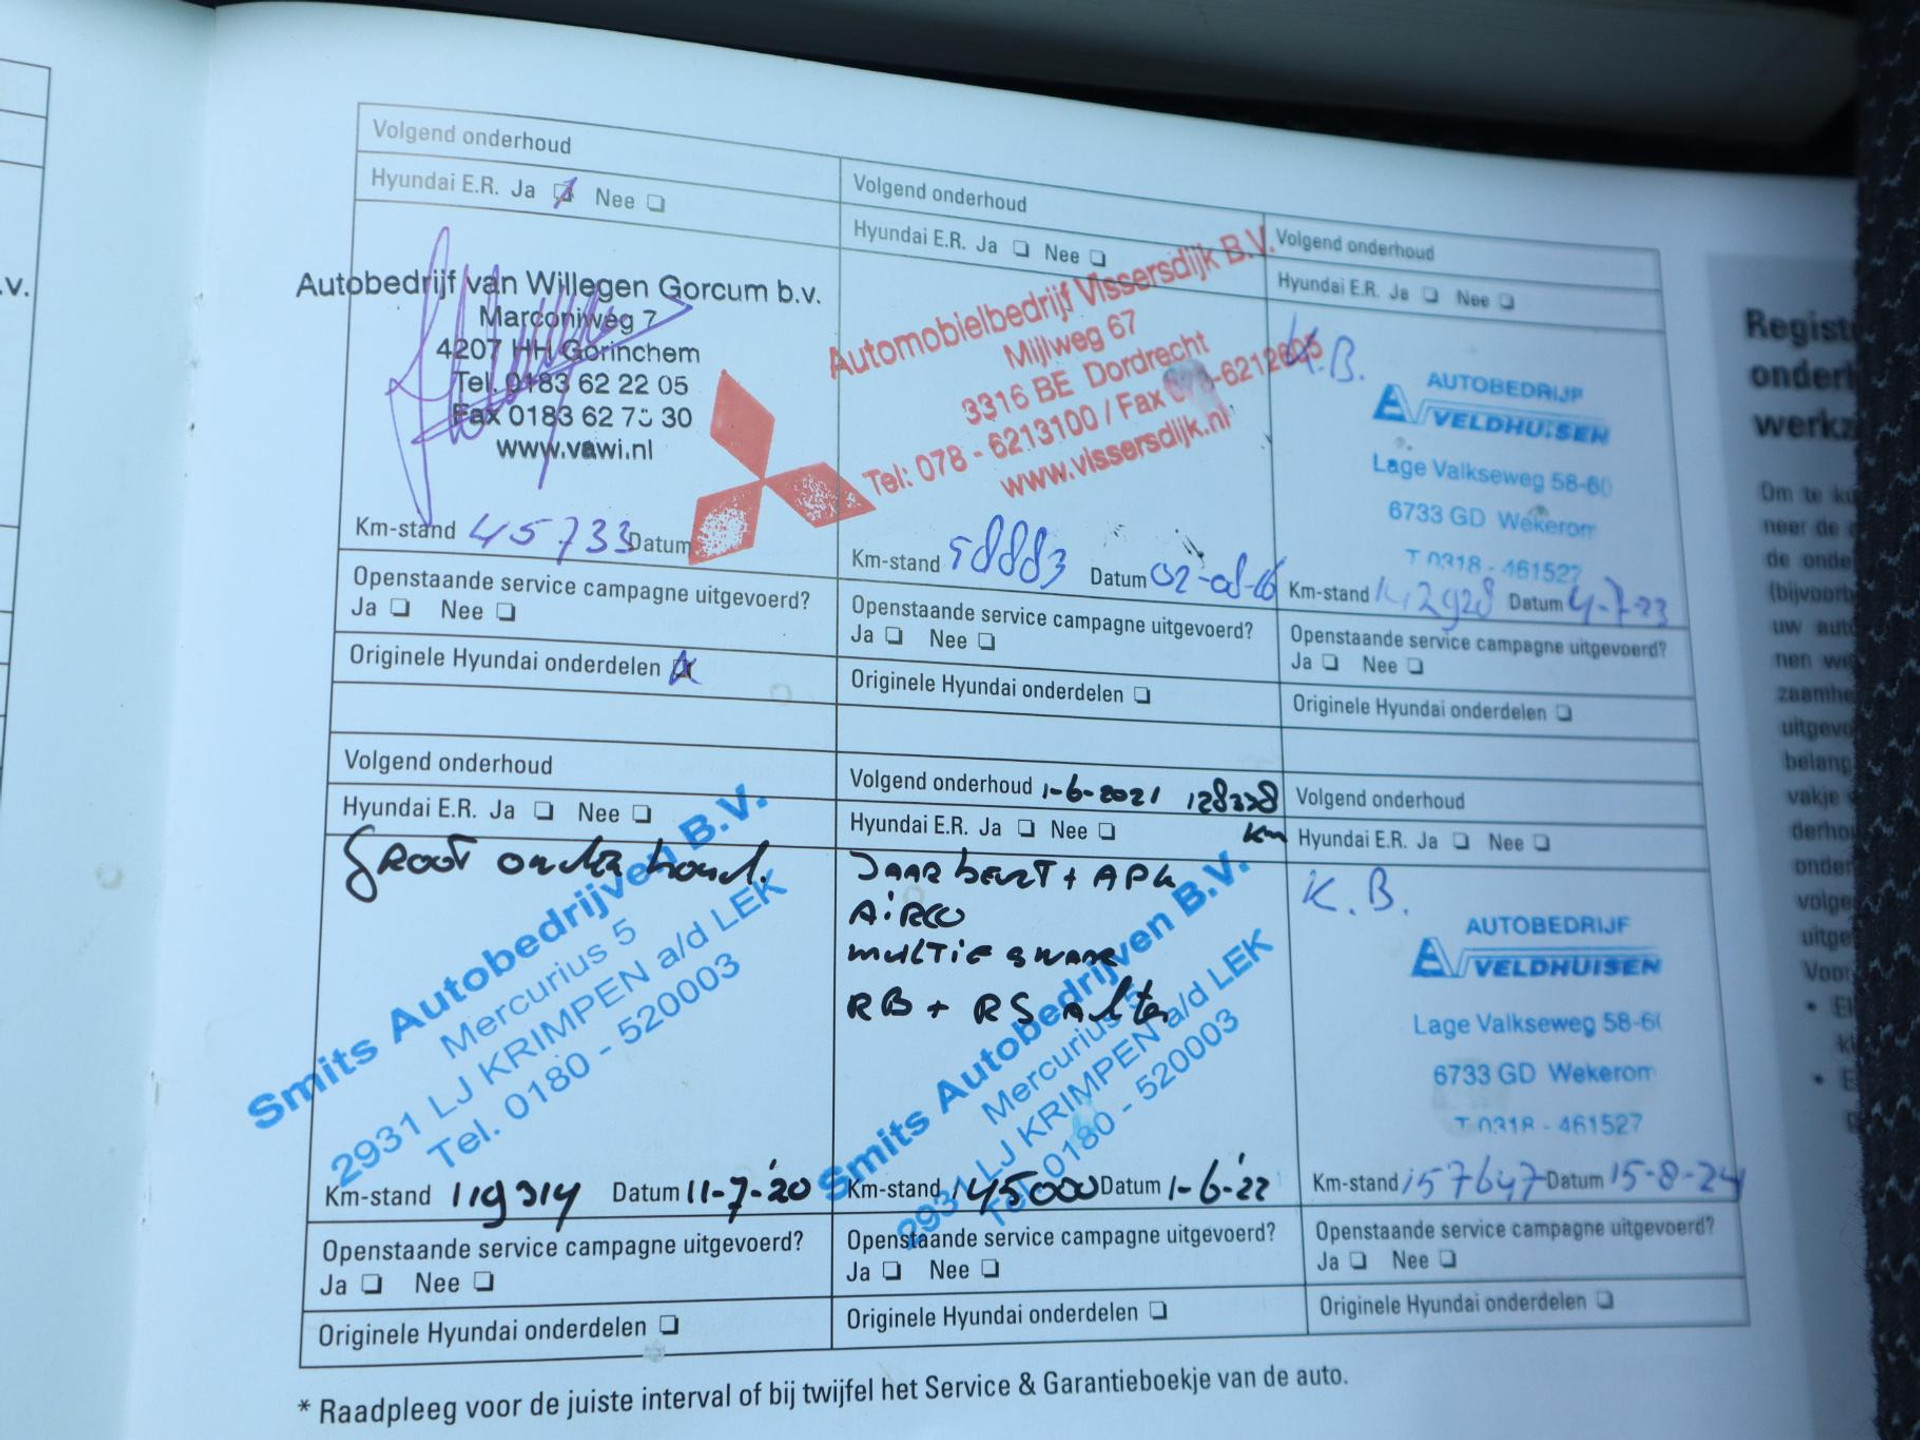 .v.
Volgend onderhoud
Hyundai E.R. Ja Nee
Autobedrijf van Willegen Gorcum b.v.
Marconiweg 7
4207 HH Gorinchem
Tel. 0183 62 22 05
Fax 0183 62 73 30
www.vawi.nl
Km-stand 45733 Datum
Openstaande service campagne uitgevoerd?
Ja Nee
Originele Hyundai onderdelen
Volgend onderhoud
Hyundai E.R. Ja Nee
Automobielbedrijf Vissersdijk B.V.
Mijlweg 67
3316 BE Dordrecht
Tel: 078 - 6213100 / Fax
www.vissersdijk.nl
Km-stand 58883 Datum 02-08-16
Openstaande service campagne uitgevoerd?
Ja Nee
Originele Hyundai onderdelen
Volgend onderhoud
Hyundai E.R. Ja Nee
K.B.
AUTOBEDRIJF
AV VELDHUISEN
Lage Valkseweg 58-60
6733 GD Wekerom
T 0318 - 461527
Km-stand Datum 4-7-23
Openstaande service campagne uitgevoerd?
Ja Nee
Originele Hyundai onderdelen
Volgend onderhoud
Hyundai E.R. Ja Nee
Groot onderhoud.
Smits Autobedrijven B.V.
Mercurius 5
2931 LJ KRIMPEN a/d LEK
Tel. 0180 - 520003
Km-stand 119314 Datum 11-7-'20
Openstaande service campagne uitgevoerd?
Ja Nee
Originele Hyundai onderdelen
Volgend onderhoud 1-6-2021 128338
Hyundai E.R. Ja Nee km
Jaarbeurt + APK
Airco
multie snaar
RB + RS Alter
Smits Autobedrijven B.V.
Mercurius 5
2931 LJ KRIMPEN a/d LEK
Tel. 0180 - 520003
Km-stand 145000 Datum 1-6-'22
Openstaande service campagne uitgevoerd?
Ja Nee
Originele Hyundai onderdelen
Volgend onderhoud
Hyundai E.R. Ja Nee
K.B.
AUTOBEDRIJF
AV VELDHUISEN
Lage Valkseweg 58-60
6733 GD Wekerom
T 0318 - 461527
Km-stand 157647 Datum 15-8-24
Openstaande service campagne uitgevoerd?
Ja Nee
Originele Hyundai onderdelen
* Raadpleeg voor de juiste interval of bij twijfel het Service & Garantieboekje van de auto.
Regist
onder
werkz
Om te
neer de
de onde
(bijvoorb
uw aut
nen
zaamhe
uitgevo
belang
vakje
derho
onder
volge
uitge
Voor